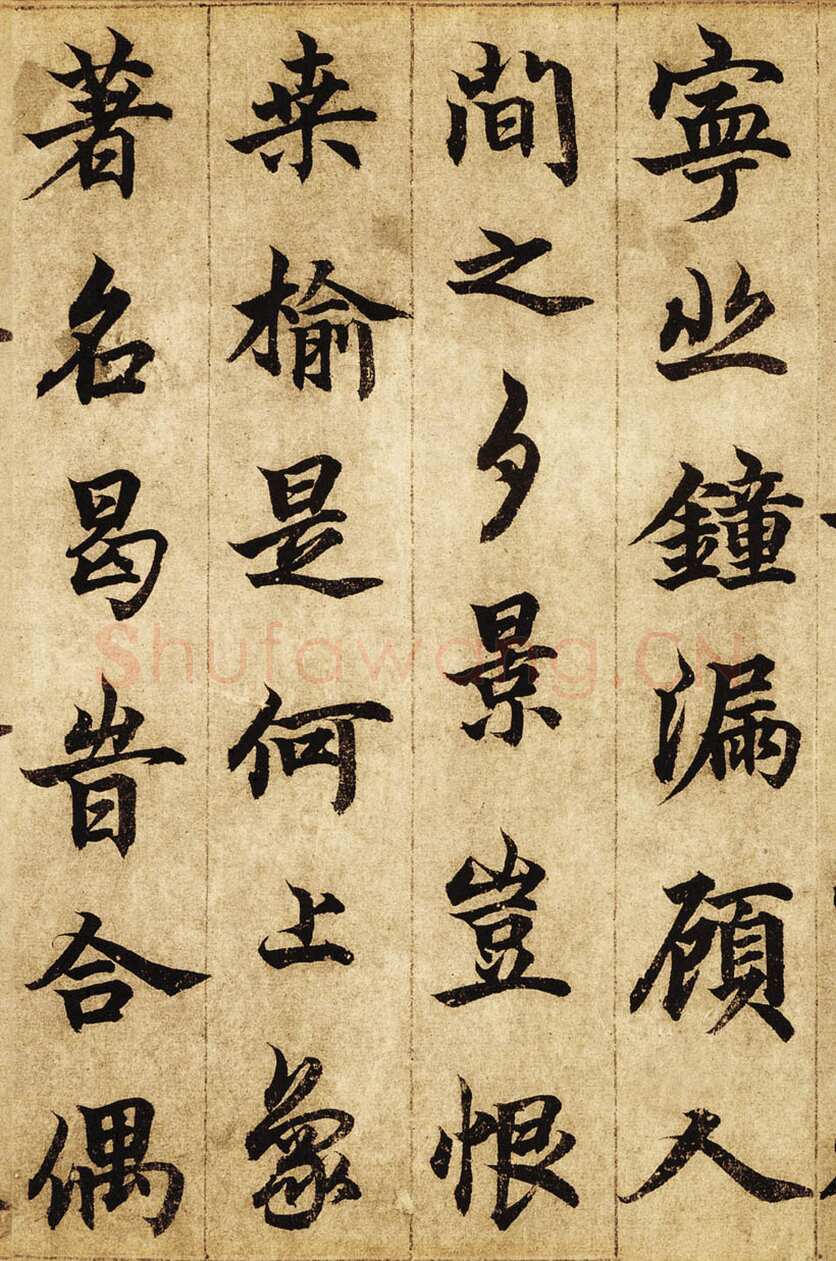 寧止鐘漏顧人
間之夕景豈恨
桒榆是何上象
著名曷旹合偶
Shufawang.CN